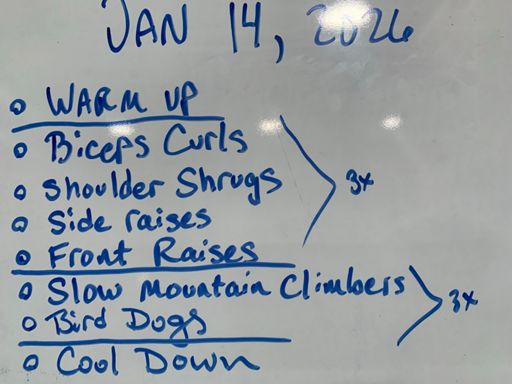 JAN 14, 2026
WARM UP
Biceps Curls
Shoulder Shrugs
Side raises
Front Raises
3x
Slow Mountain Climbers
Bird Dogs
3x
Cool Down